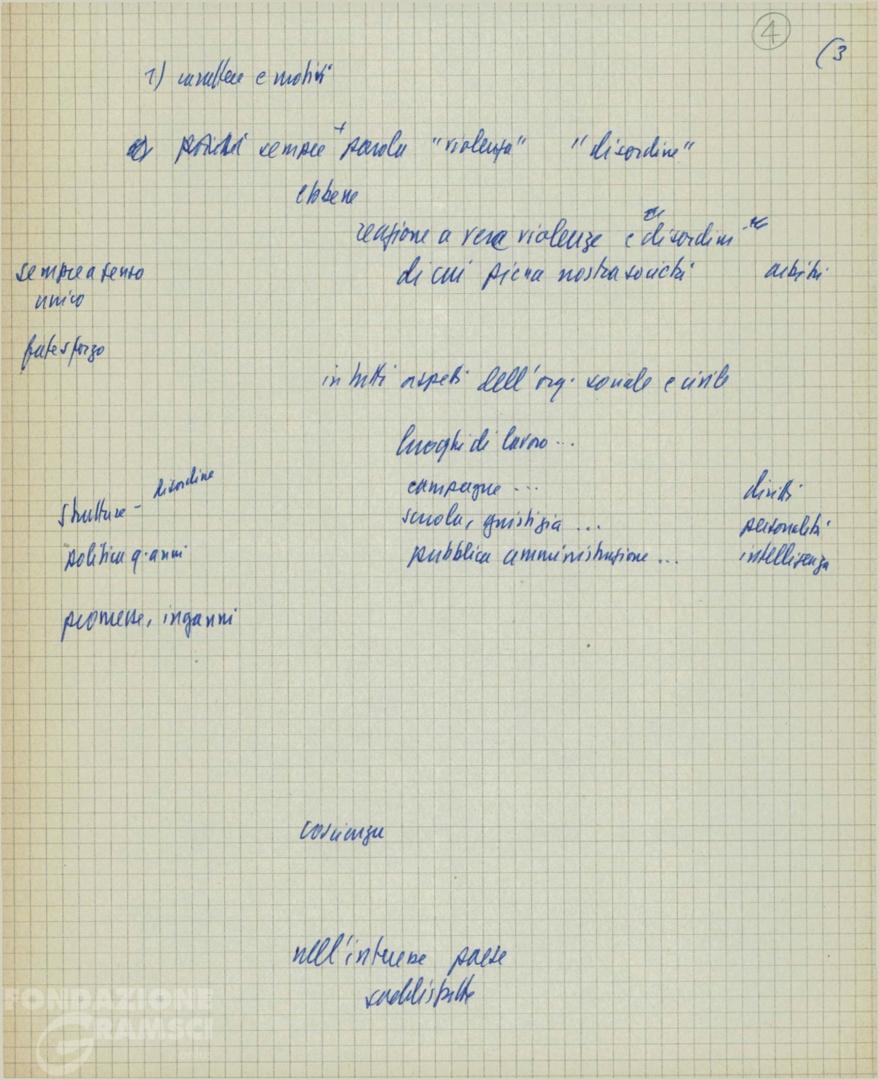 4
(3
1) carattere e motivi
a) poiché sempre + parola "violenza" "disordine"
ebbene
reazione a vera violenze e disordini
di cui piena nostra società arbitri
sempre a senso
unico
fate sforzo
in tutti aspetti dell'org. sociale e civile
luoghi di lavoro...
campagne... diritti
scuola, giustizia... personalità
pubblica amministrazione... intelligenza
strutture - disordine
politica q. anni
promesse, inganni
coscienza
nell'interesse paese
soddisfatte
FONDAZIONE
GRAMSCI